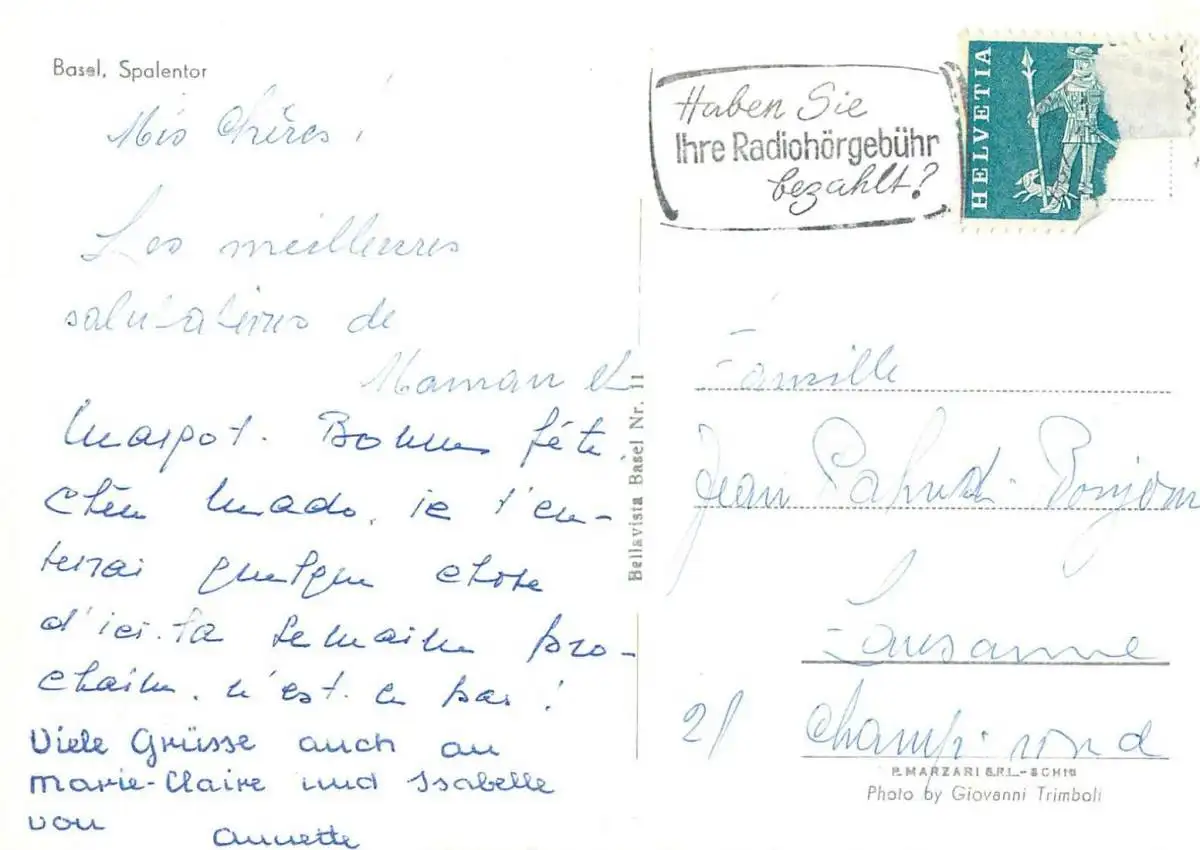 Basel, Spalentor
Mes chères!
Les meilleures
salutations de
Maman et
Margot. Bonne fête,
chère Mado, je t'en-
verrai quelque chose
d'ici-là semaine pro-
chaine, n'est-ce pas!
Viele Grüsse auch an
Marie-Claire und Isabelle
von Annette
Bellavista Basel Nr. 11
Haben Sie
Ihre Radiohörgebühr
bezahlt?
HELVETIA
Famille
Jean Pahud-Bonjour
Lausanne
21 Champ-rond
P. MARZARI S.R.L.-SCHIO
Photo by Giovanni Trimboli